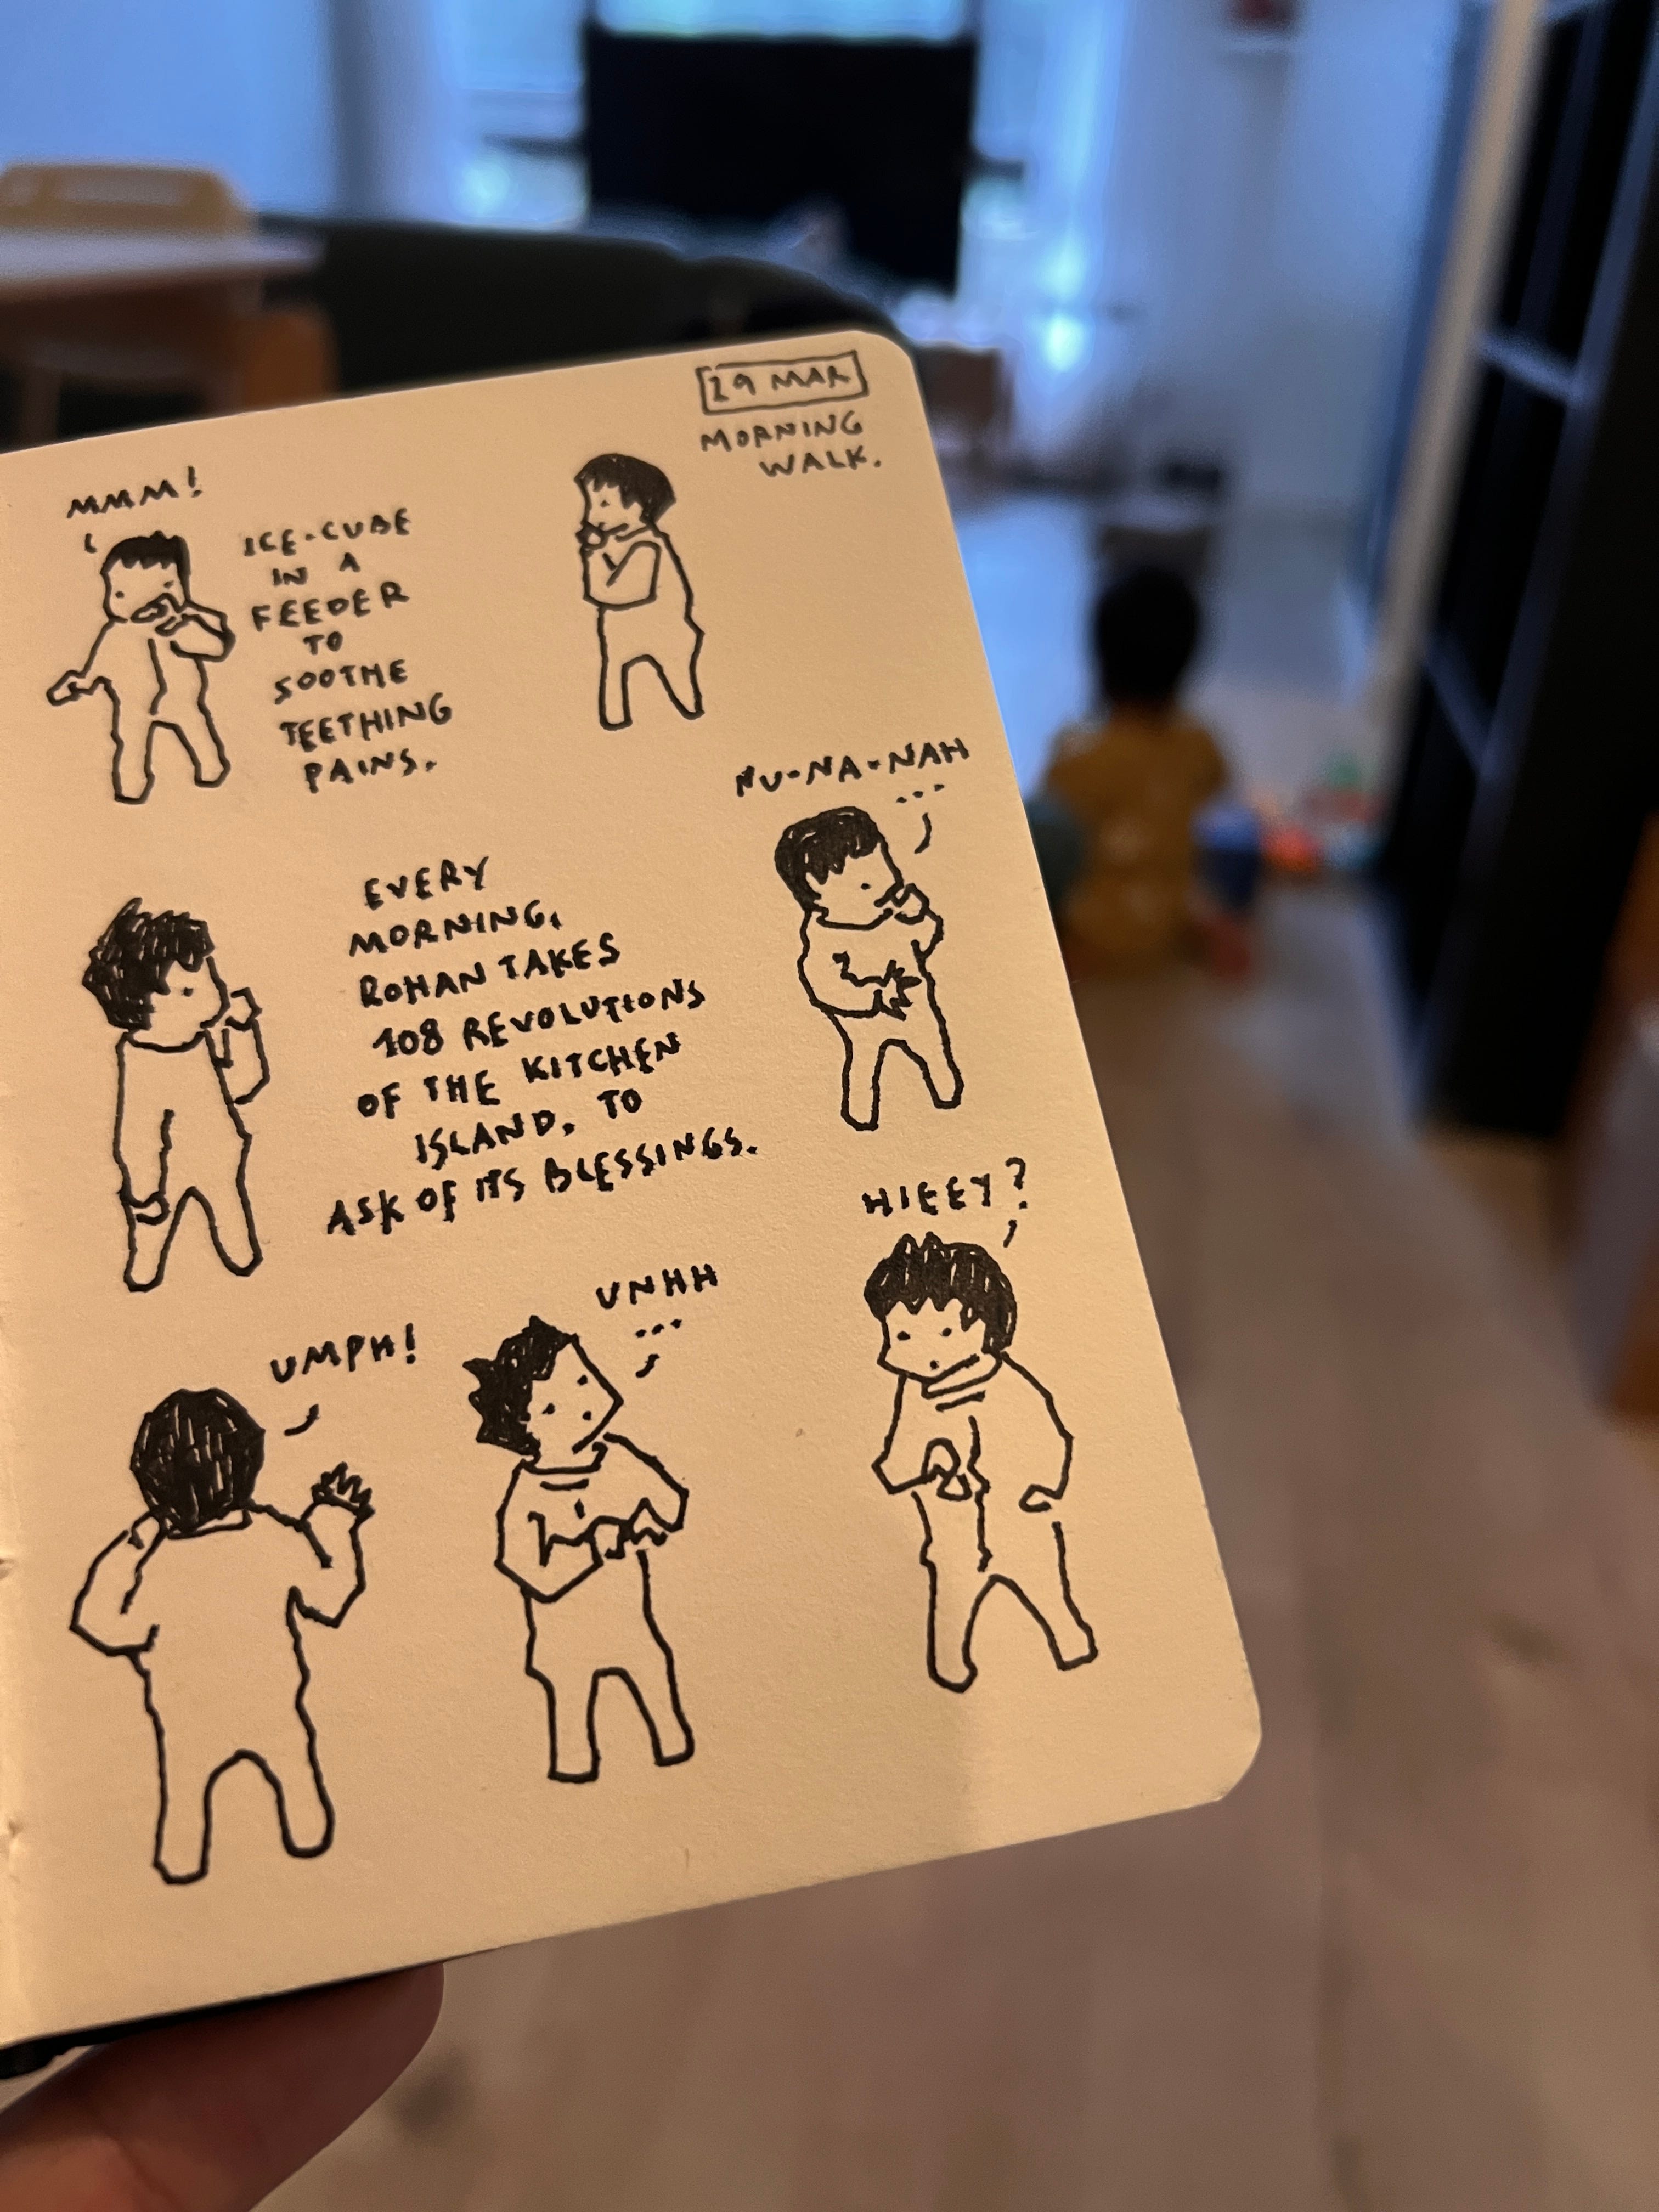 29 MAR
MORNING
WALK.
MMM!
ICE-CUBE
IN A
FEEDER
TO
SOOTHE
TEETHING
PAINS.
NU-NA-NAH
...
EVERY
MORNING,
ROHAN TAKES
108 REVOLUTIONS
OF THE KITCHEN
ISLAND, TO
ASK OF ITS BLESSINGS.
HIEEY?
UNHH
...
UMPH!